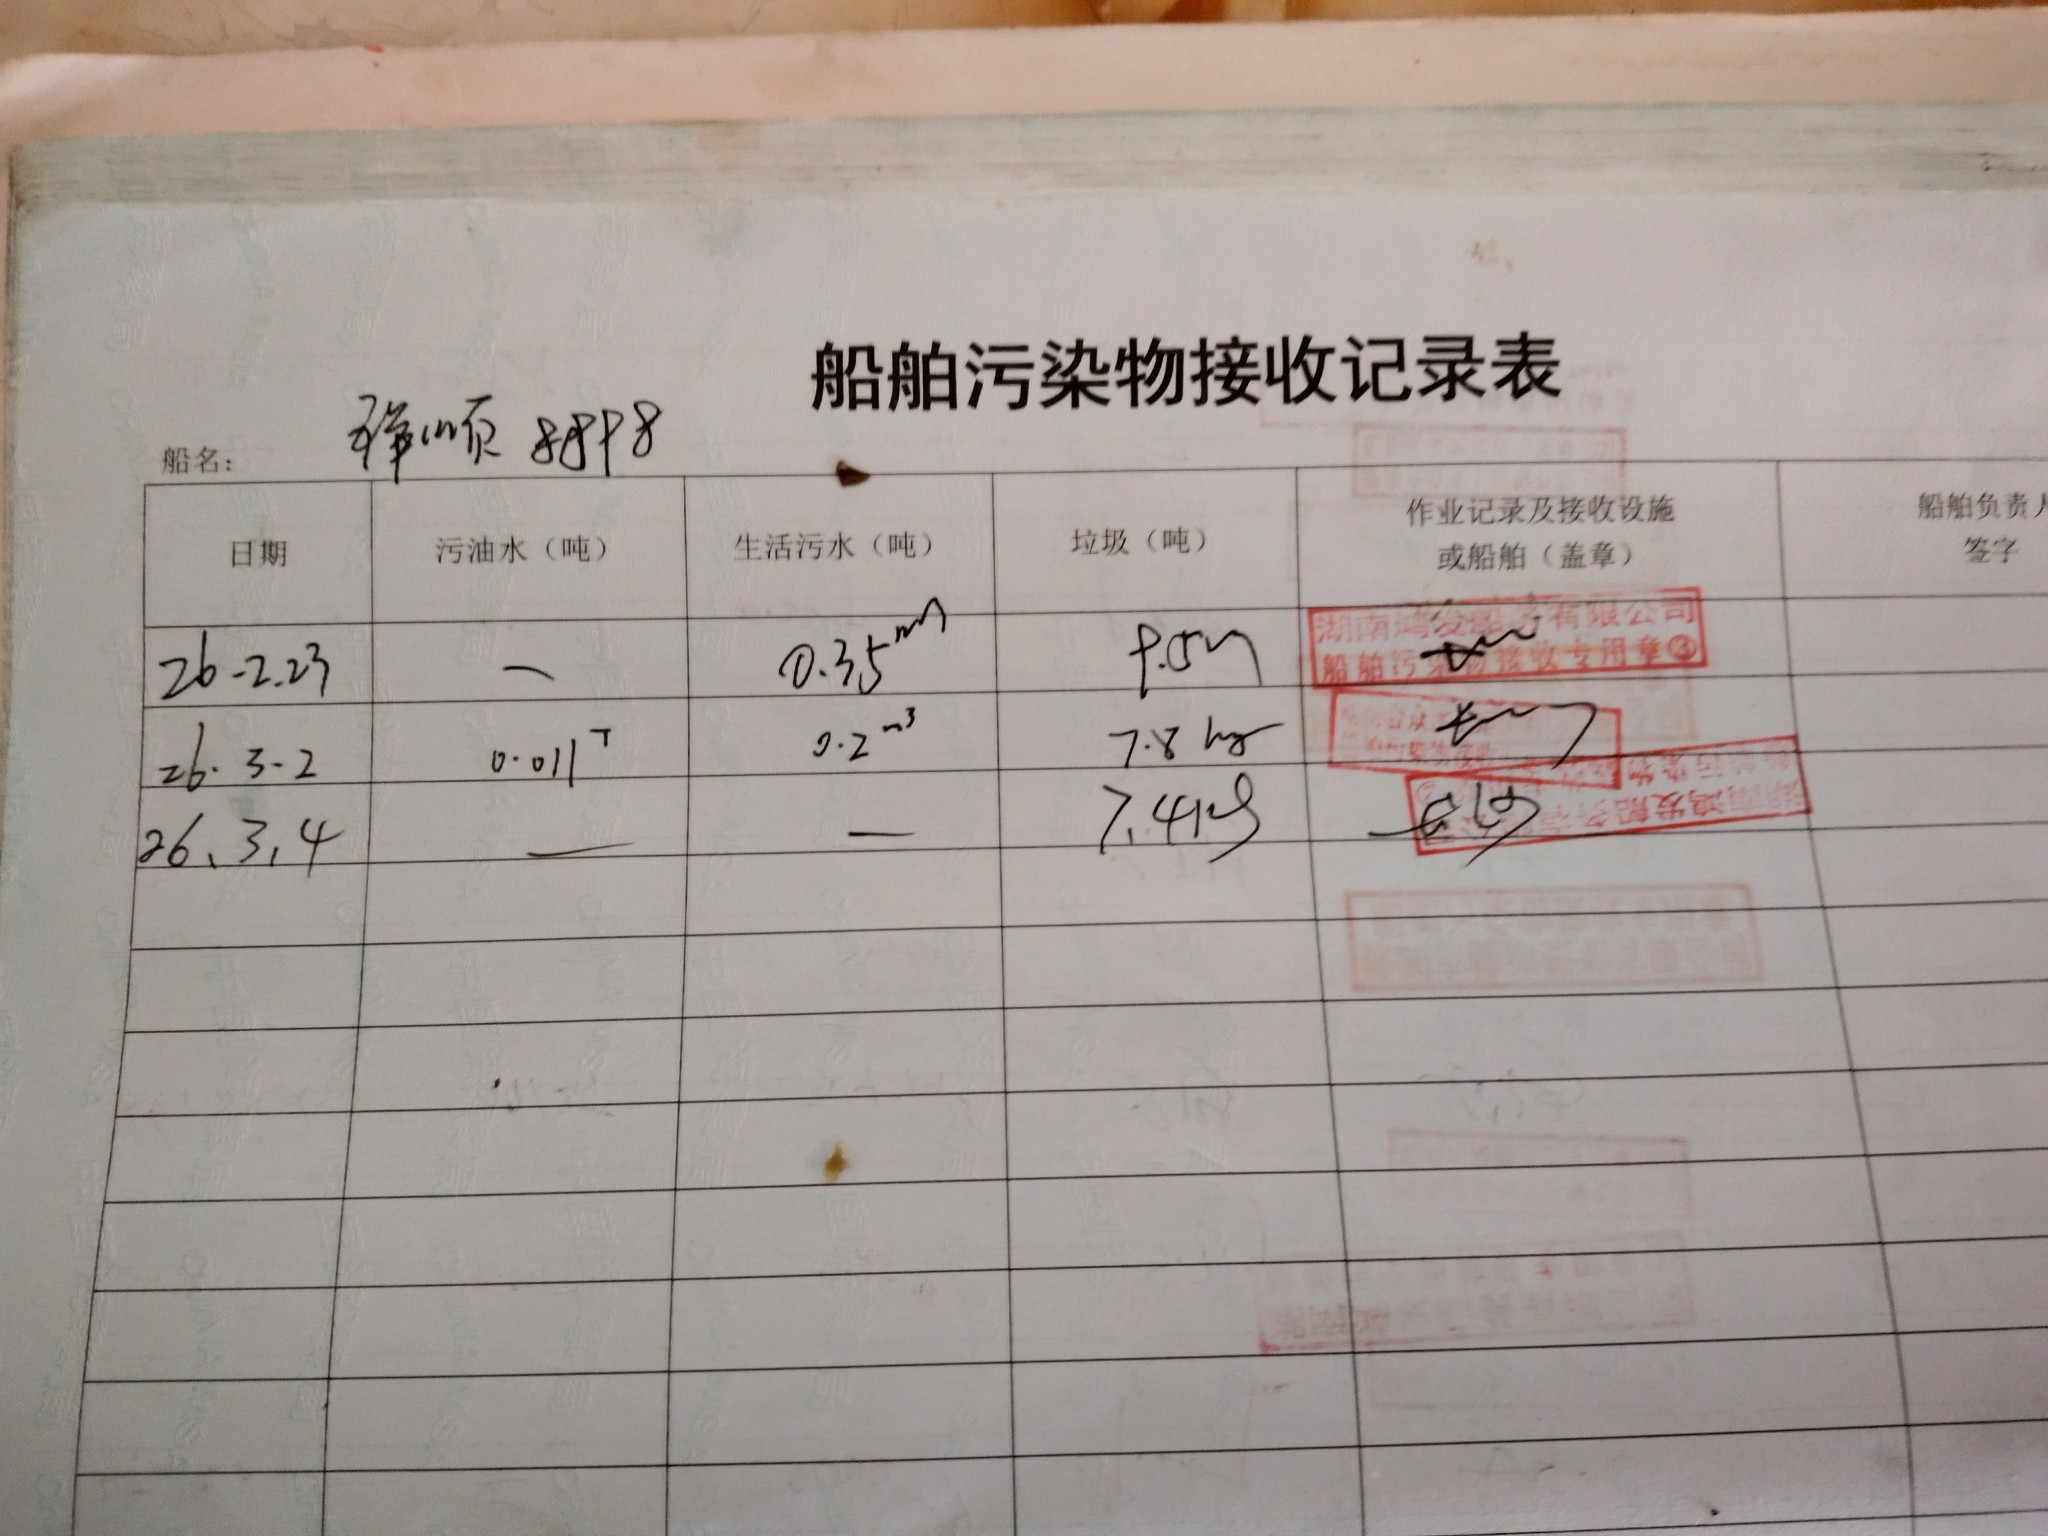 船舶污染物接收记录表
船名： 顺 8898
日期 污油水（吨） 生活污水（吨） 垃圾（吨） 作业记录及接收设施或船舶（盖章） 船舶负责人签字
26-2.23 — 0.35 9.5
湖南鸿发船务有限公司
船舶污染物接收专用章③
26.3-2 0.011T 0.2m³ 7.8kg
26.3.4 — — 7.4kg
湖南鸿发船务有限公司